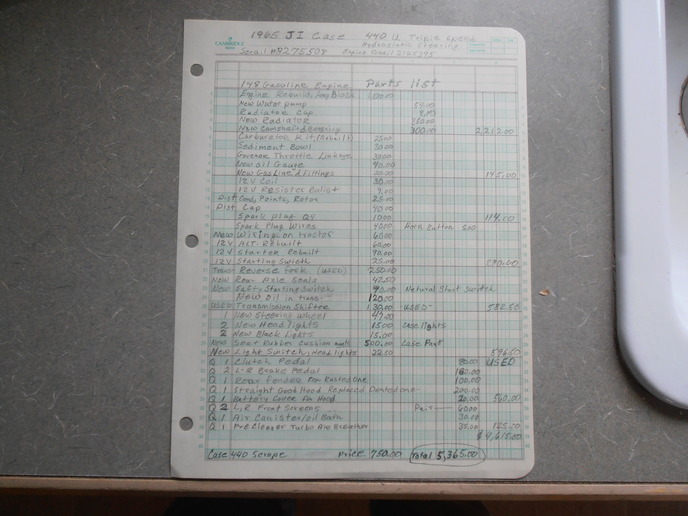 1965 JI Case 440 U Triple Speed
CAMBRIDGE
Hydrostatic Steering
Serial # 8275508 Engine Serial
148 Gasoline Engine Parts list
Engine Rebuild, Block
New Water pump
Radiator Cap
New Radiator
New Camshaft 300.00 2,212.00
Carburator Kit, (Rebuilt) 25.00
Sediment Bowl 30.00
Governor Throttle Linkage 30.00
New oil Gauge 40.00
New Gas Line & Fittings 145.00
12V Coil 30.00
12V Resister 9.00
Dist Cond, Points, Rotor 25.00
Dist. Cap
Spark plug 114.00
Spark Plug Wires Horn Button
New Wiring on tractor 60.00
12V ALT. Rebuilt 60.00
12V Starter Rebuilt 90.00
12V Starting Switch 25.00
Trans Reverse Fork (USED) 250.00
New Rear Axle Seals 42.50
New Safty Starting Switch 90.00 Natural Start Switch
New Oil in trans 120.00
USED Transmission Shifter USED 582.50
1 New Steering Wheel 47.00
2 New Head lights 15.00 Case lights
2 New Black Lights 15.00
New Seat Rubber Cushion 500.00 Case Part
New Light Switch, Head lights 22.00
Q 1 Clutch Pedal USED
Q 2 L-R Brake Pedal
Q 1 Rear Fender For Rusted One 100.00
Q 1 Straight Good Hood Replaced Dented one 200.00
Q 1 Battery Cover For Hood 20.00 560.00
Q 2 L,R Front Screens Pair 60.00
Q 1 Air Canister/oil Bath 30.00
Q 1 Pre Cleaner Turbo Air Breather 35.00 125.00
$4,615.00
Case 440 Scrape Price 750.00 Total 5,365.00